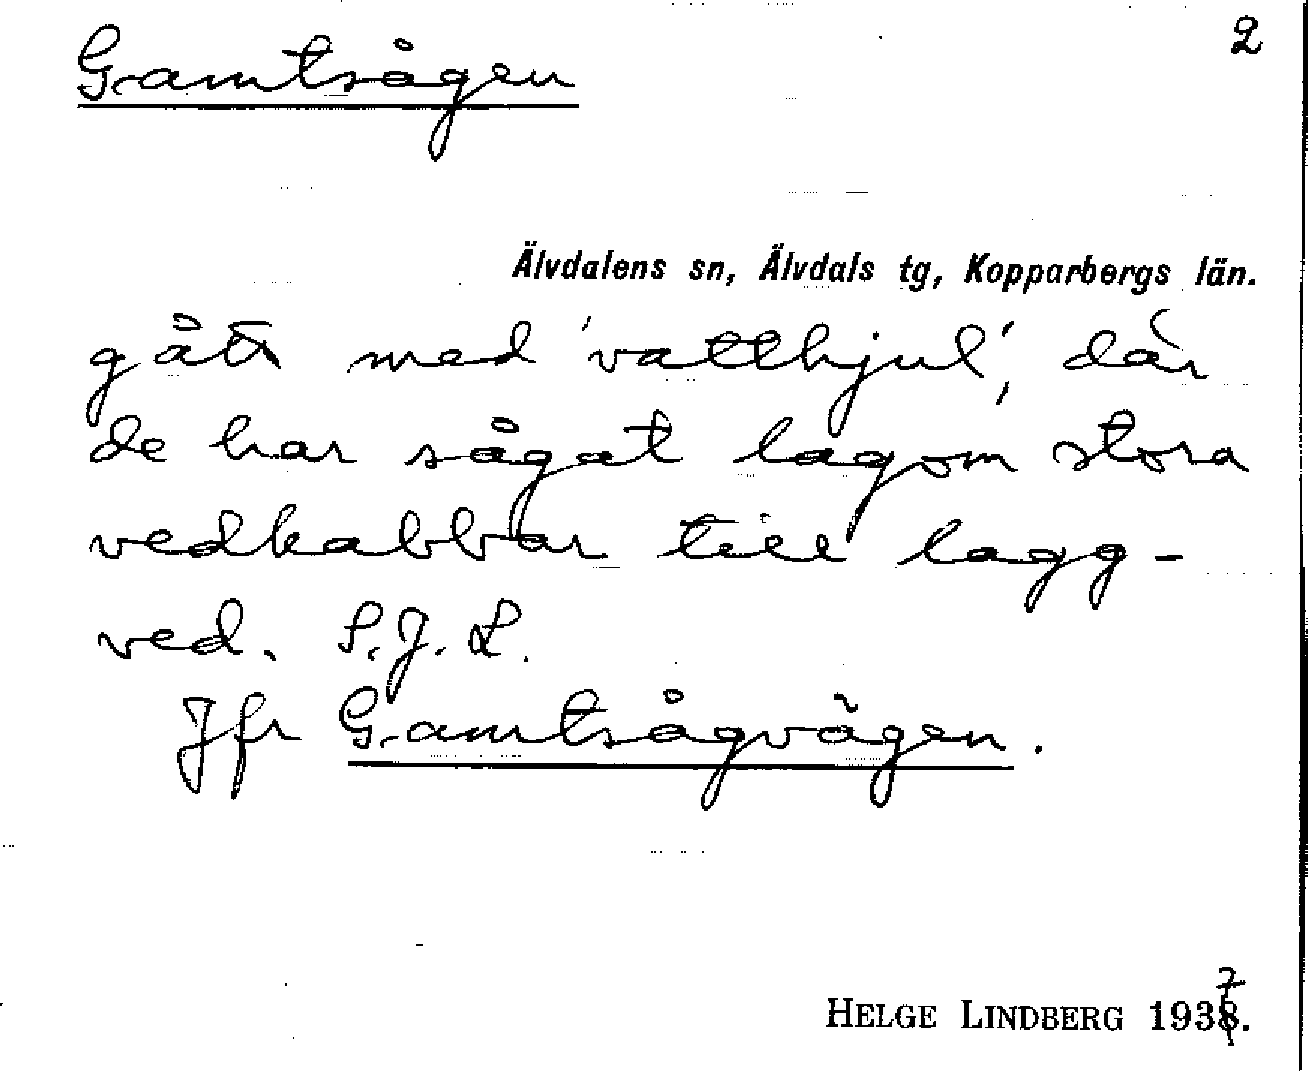 Gamtsågen
2
Älvdalens sn, Älvdals tg, Kopparbergs län.
gått med 'vatthjul', där
de har sågat lagom stora
vedkabbar till lagg-
ved. S.J.L.
Jfr Gamtsågvägen.
HELGE LINDBERG 1937.